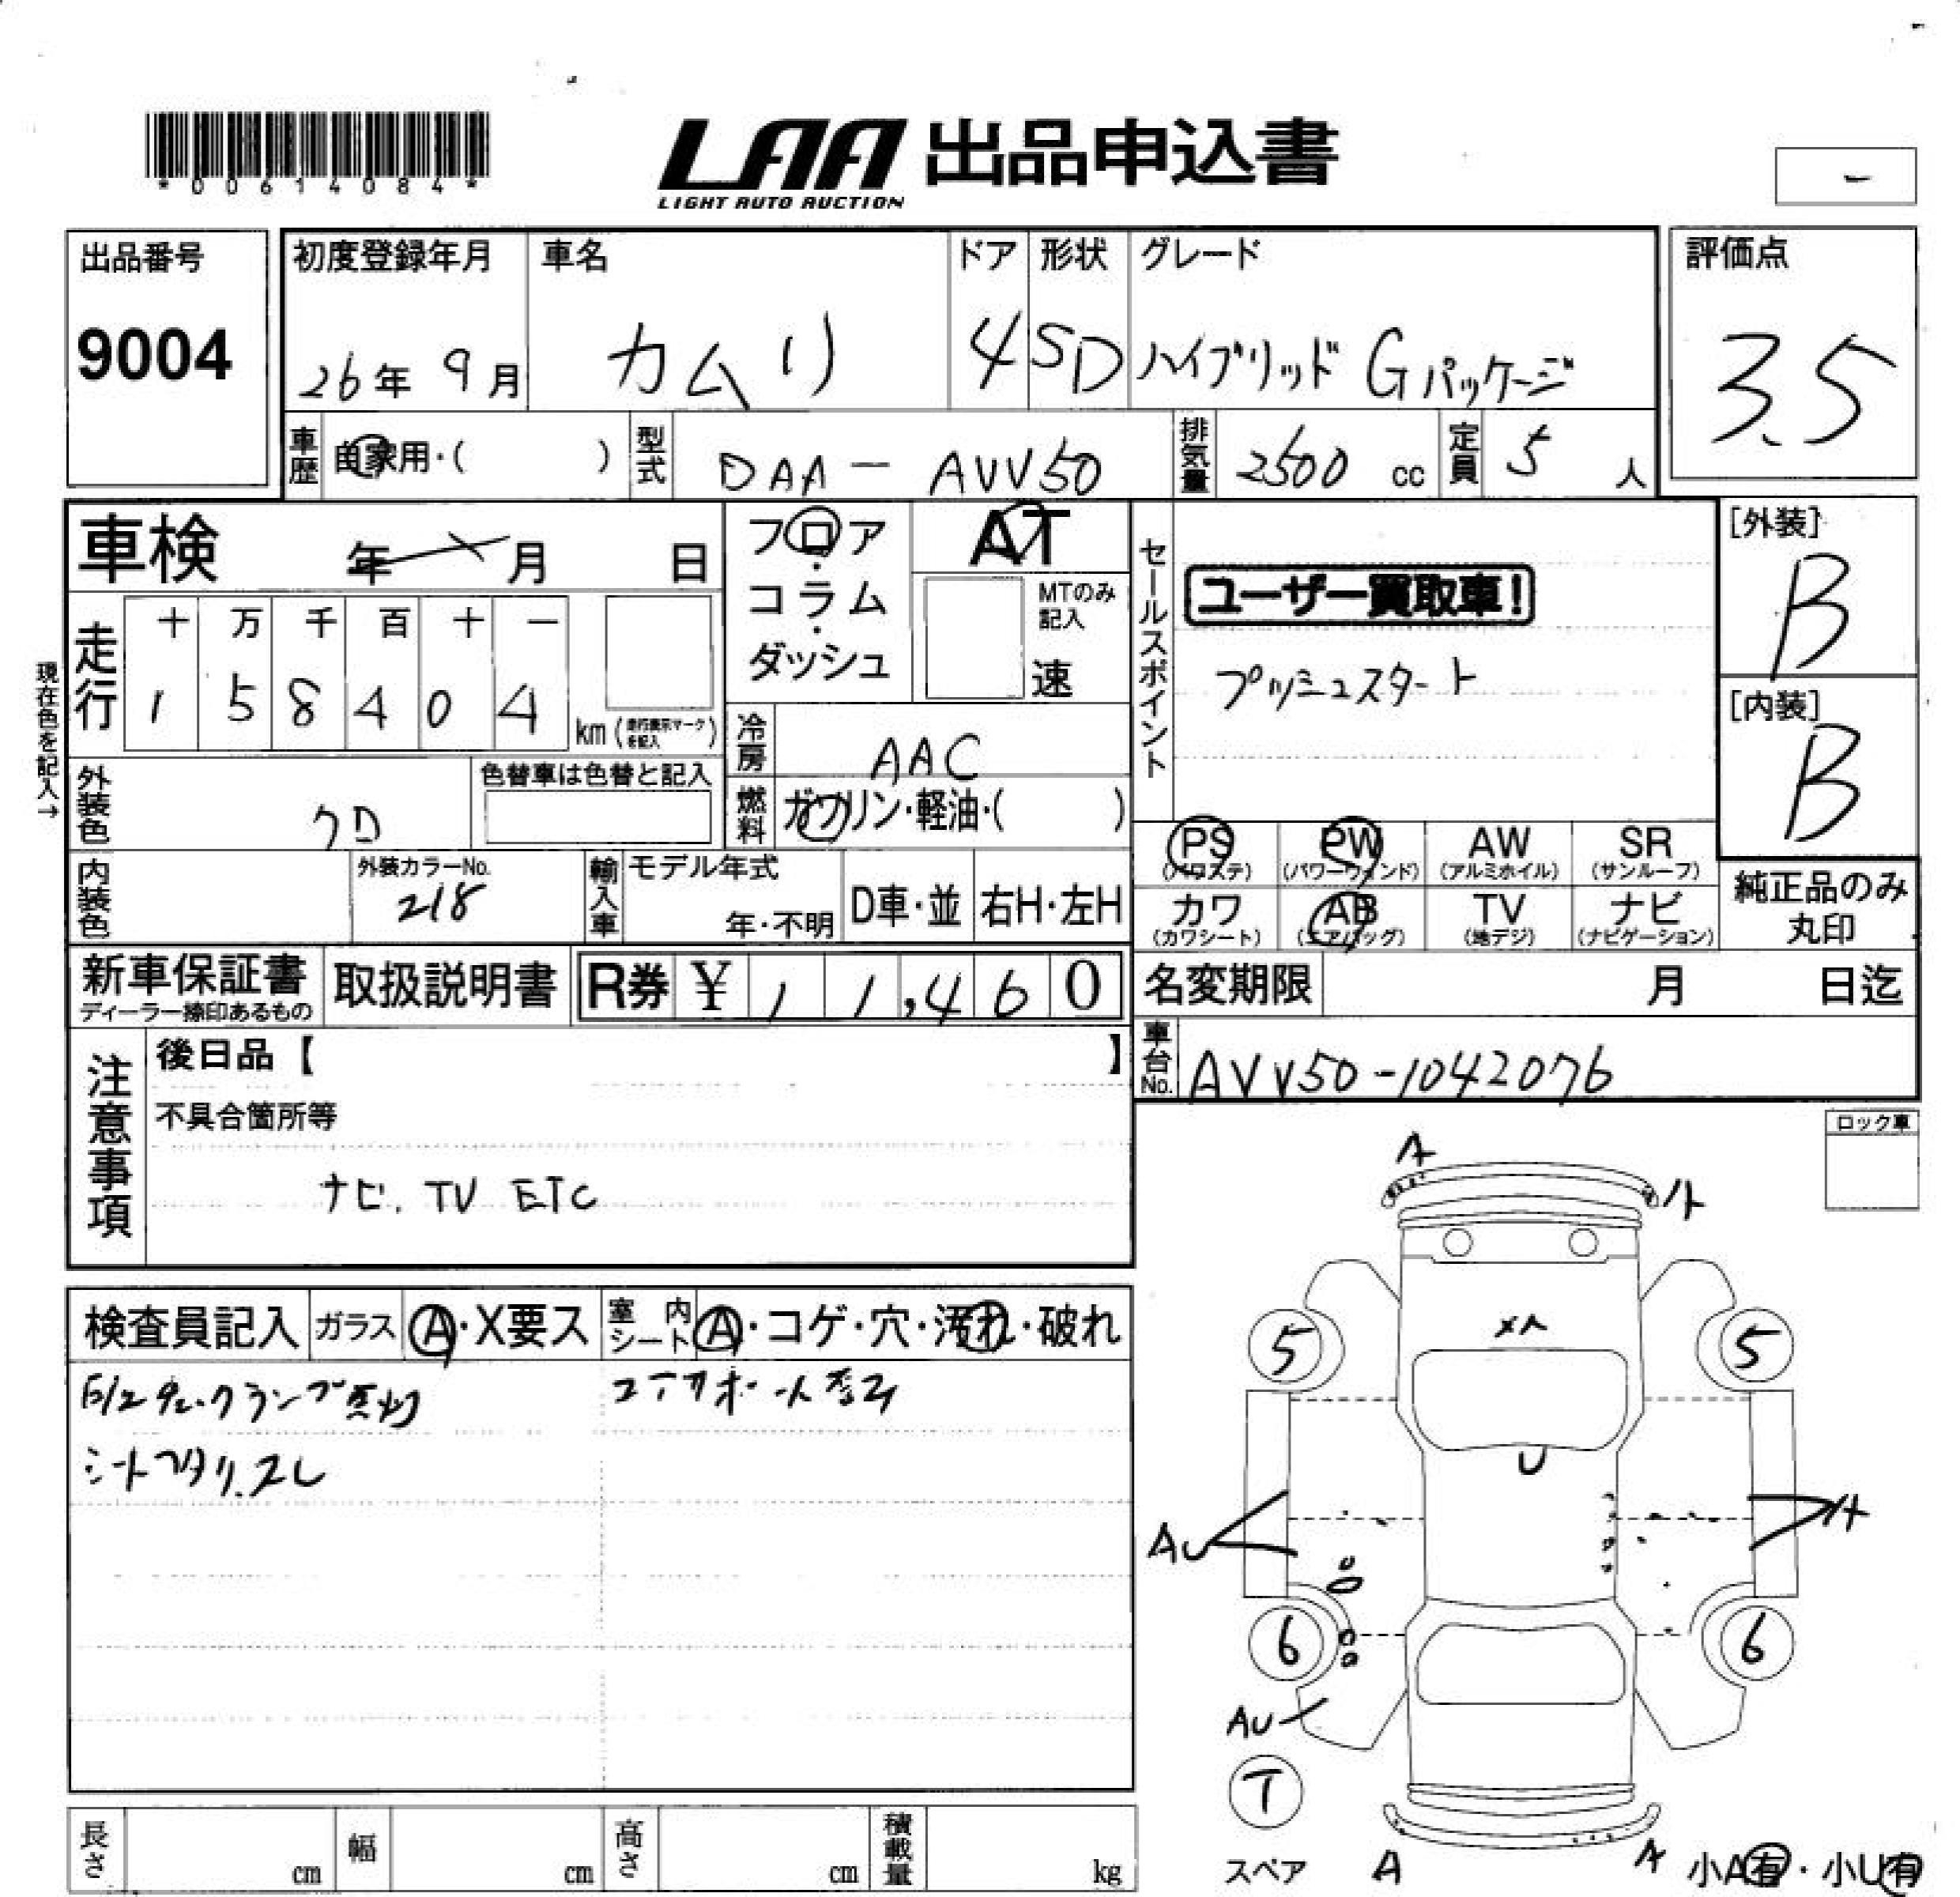 *00614084*
LAA 出品申込書
LIGHT AUTO AUCTION
出品番号
9004
初度登録年月 車名 ドア 形状 グレード
26年 9月 カムリ 4 SD ハイブリッド Gパッケージ
評価点
3.5
車歴 自家用・( ) 型式 DAA-AVV50 排気量 2500 cc 定員 5 人
車検 年 月 日
フロア・コラム・ダッシュ
AT
MTのみ記入
速
セールスポイント
ユーザー買取車!
プッシュスタート
[外装]
B
[内装]
B
現在色を記入→
走行
十 万 千 百 十 一
1 5 8 4 0 4
km (走行表示マークを記入)
冷房 AAC
燃料 ガソリン・軽油・( )
外装色 クロ
色替車は色替と記入
内装色
外装カラーNo.
218
輸入車 モデル年式
年・不明
D車・並 右H・左H
PS (パワステ) PW (パワーウィンド) AW (アルミホイル) SR (サンルーフ)
カワ (カワシート) AB (エアバッグ) TV (地デジ) ナビ (ナビゲーション)
純正品のみ
丸印
新車保証書
ディーラー捺印あるもの
取扱説明書
R券 ¥ 11,460
名変期限 月 日迄
車台No. AVV50-1042076
注意事項
後日品【 】
不具合箇所等
ナビ. TV ETC
ロック車
検査員記入 ガラス A・X要ス 室内シート A・コゲ・穴・汚れ・破れ
シートヘタリ.スレ
A
A
5
5
XA
U
AU
A
6
6
AU
T
スペア
A
A
小A有・小U有
長さ cm 幅 cm 高さ cm 積載量 kg